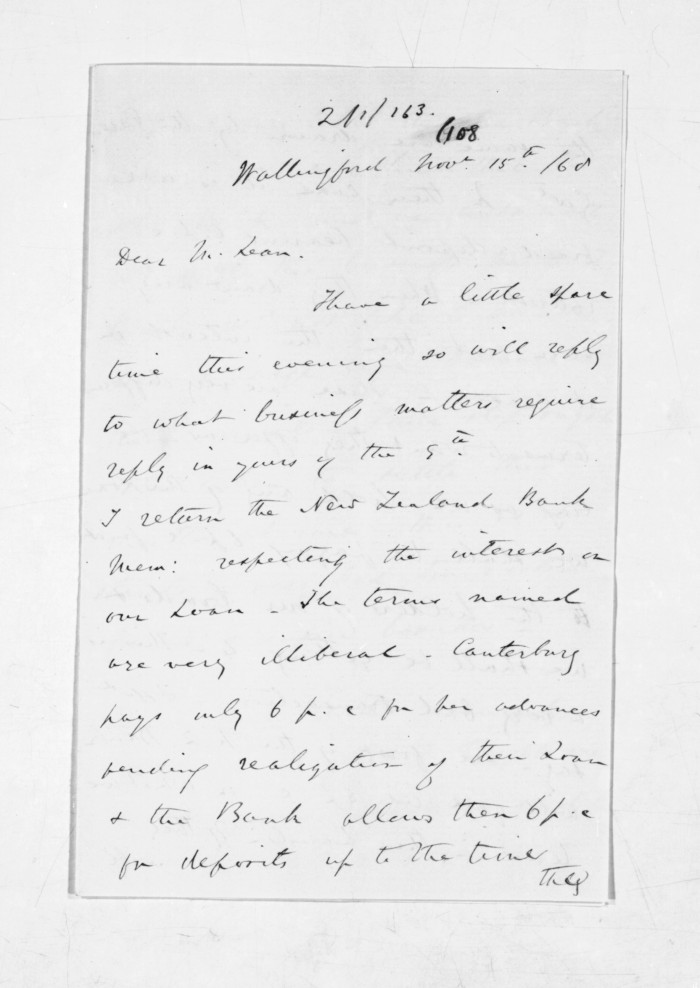 2/1/163.
108
Wallingford Novr. 15th /60
Dear McLean.
I have a little spare
time this evening so will reply
to what business matters require
reply in yours of the 9th.
I return the New Zealand Bank
Mem: respecting the interest on
our Loan - The terms named
are very illiberal - Canterbury
pays only 6 p. c for her advances
pending realization of their Loan
& the Bank allows them 6 p. c
for deposits up to the time
they